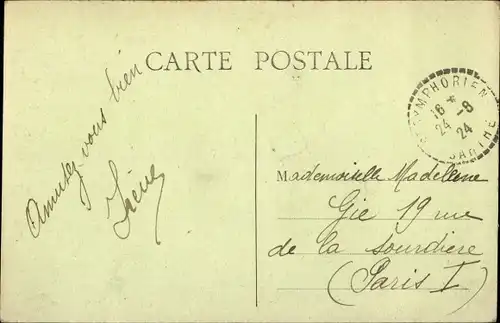 CARTE POSTALE
Amusez-vous bien
Irène
SYMPHORIEN
16 *
24 - 8
24
SARTHE
Mademoiselle Madeleine
Gie 19 rue
de la Sourdière
(Paris I)